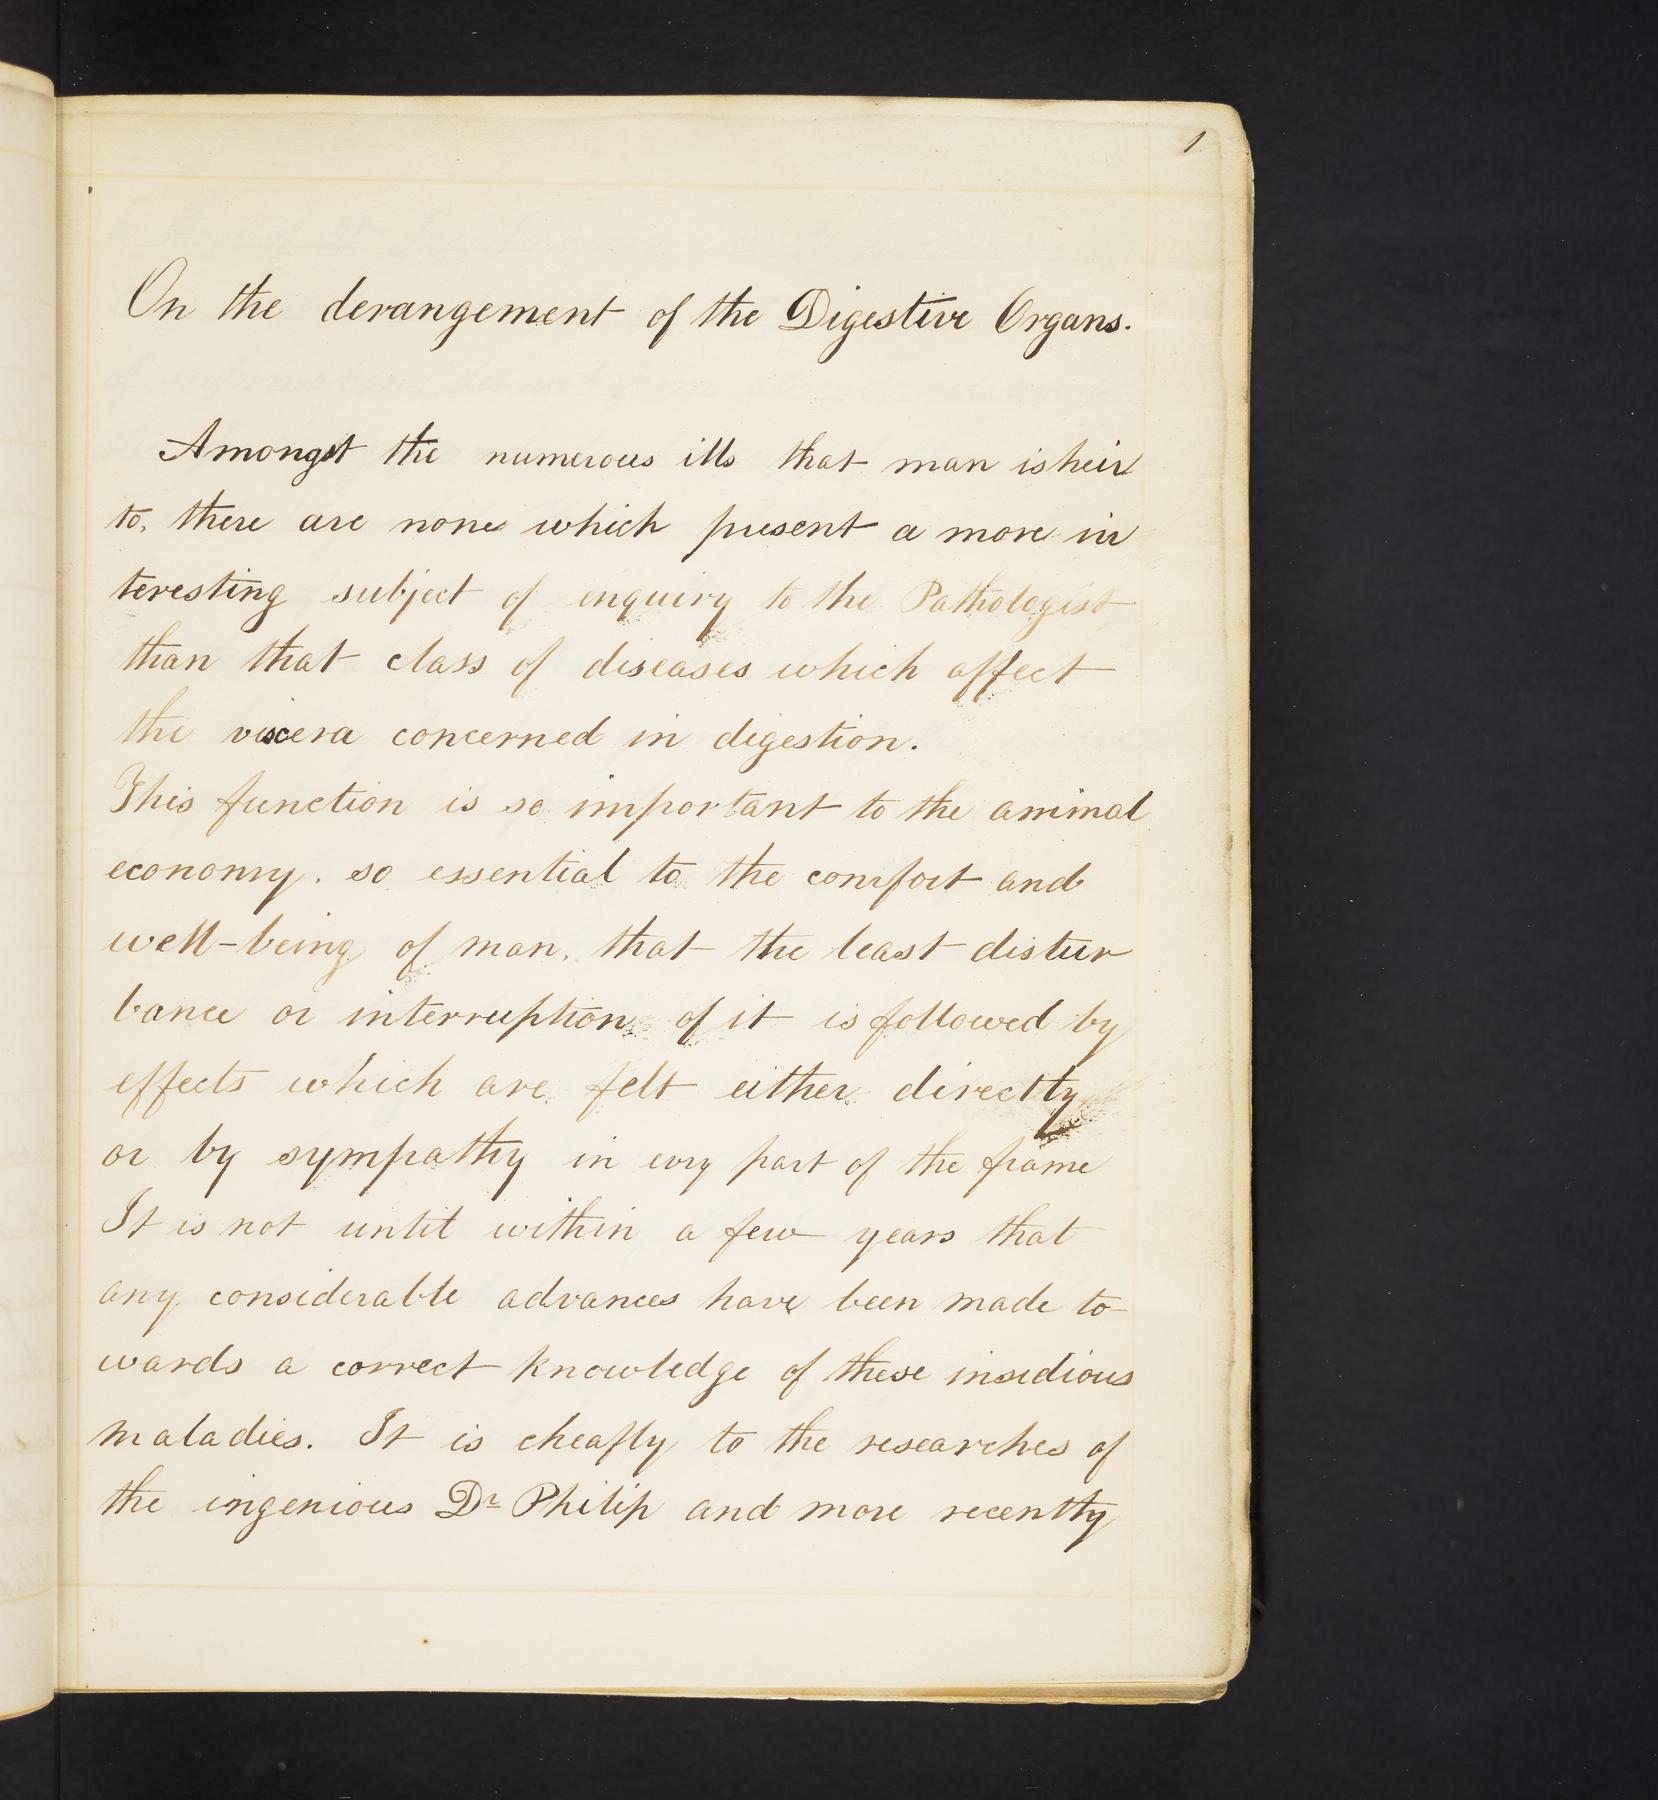 1
On the derangement of the Digestive Organs.
Amongst the numerous ills that man is heir
to, there are none which present a more in
teresting subject of enquiry to the Pathologist
than that class of diseases which affect
the viscera concerned in digestion.
This function is so important to the animal
economy. so essential to the comfort and
well-being of man, that the least distur
bance or interruption of it is followed by
effects which are felt either directly
or by sympathy in evry part of the frame
It is not until within a few years that
any considerable advances have been made to
wards a correct knowledge of these insidious
maladies. It is cheafly to the researches of
the ingenious Dr Philip and more recently